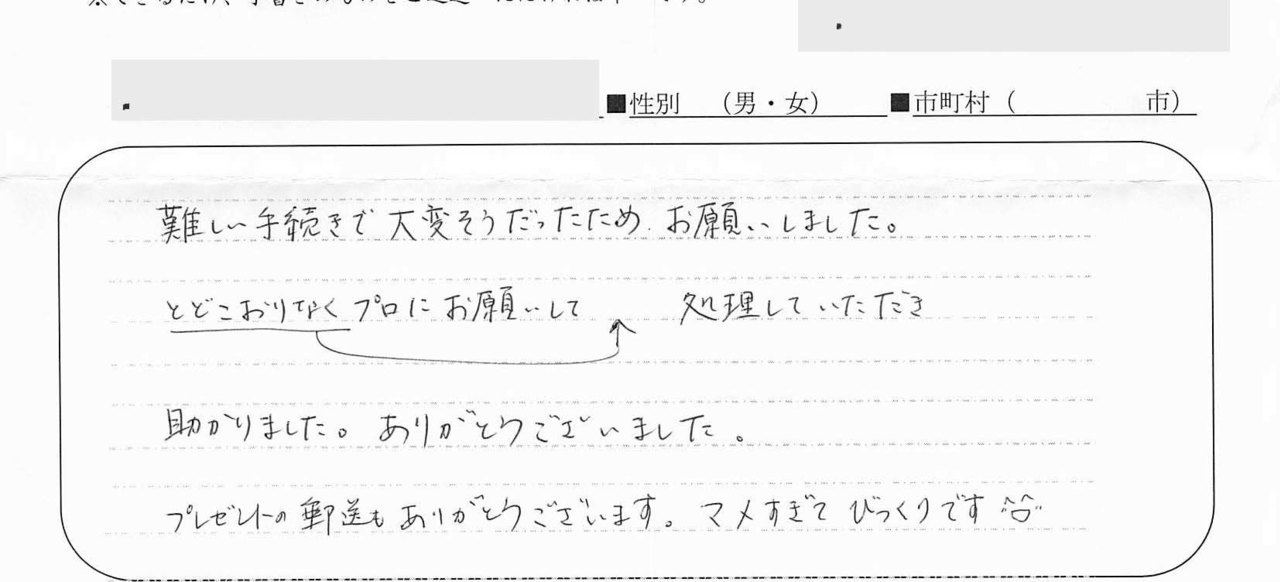 ■性別 （男・女） ■市町村（ 市）
難しい手続きで大変そうだったため、お願いしました。
とどこおりなくプロにお願いして 処理していただき
助かりました。ありがとうございました。
プレゼントの郵送もありがとうございます。マメすぎてびっくりです